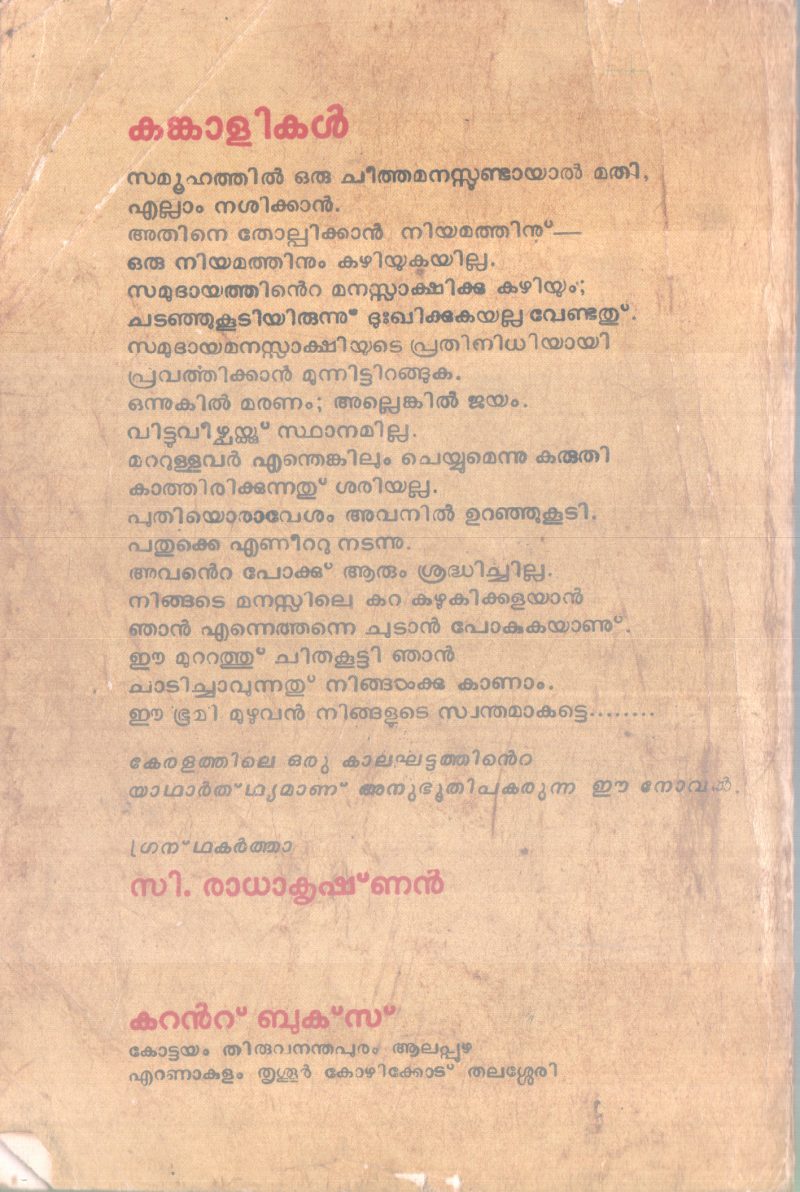 കങ്കാളികൾ
സമൂഹത്തിൽ ഒരു ചീത്തമനസ്സുണ്ടായാൽ മതി,
എല്ലാം നശിക്കാൻ.
അതിനെ തോല്പിക്കാൻ നിയമത്തിനു്—
ഒരു നിയമത്തിനും കഴിയുകയില്ല.
സമുദായത്തിൻെറ മനസ്സാക്ഷിക്കു കഴിയും;
ചടഞ്ഞുകൂടിയിരുന്നു് ദുഃഖിക്കുകയല്ല വേണ്ടതു്.
സമുദായമനസ്സാക്ഷിയുടെ പ്രതിനിധിയായി
പ്രവർത്തിക്കാൻ മുന്നിട്ടിറങ്ങുക.
ഒന്നുകിൽ മരണം; അല്ലെങ്കിൽ ജയം.
വിട്ടുവീഴ്ചയ്ക്കു് സ്ഥാനമില്ല.
മററുള്ളവർ എന്തെങ്കിലും ചെയ്യുമെന്നു കരുതി
കാത്തിരിക്കുന്നതു് ശരിയല്ല.
പുതിയൊരാവേശം അവനിൽ ഉറഞ്ഞുകൂടി.
പതുക്കെ എണീററു നടന്നു.
അവൻെറ പോക്കു് ആരും ശ്രദ്ധിച്ചില്ല.
നിങ്ങടെ മനസ്സിലെ കറ കഴുകിക്കളയാൻ
ഞാൻ എന്നെത്തന്നെ ചുടാൻ പോകുകയാണു്.
ഈ മുററത്തു് ചിതകൂട്ടി ഞാൻ
ചാടിച്ചാവുന്നതു് നിങ്ങൾക്കു കാണാം.
ഈ ഭൂമി മുഴുവൻ നിങ്ങളുടെ സ്വന്തമാകട്ടെ........
കേരളത്തിലെ ഒരു കാലഘട്ടത്തിൻെറ
യാഥാർത്ഥ്യമാണ് അനുഭൂതിപകരുന്ന ഈ നോവൽ.
ഗ്രന്ഥകർത്താ
സി. രാധാകൃഷ്ണൻ
കറൻറ് ബുക്സ്
കോട്ടയം തിരുവനന്തപുരം ആലപ്പുഴ
എറണാകുളം തൃശ്ശൂർ കോഴിക്കോട് തലശ്ശേരി